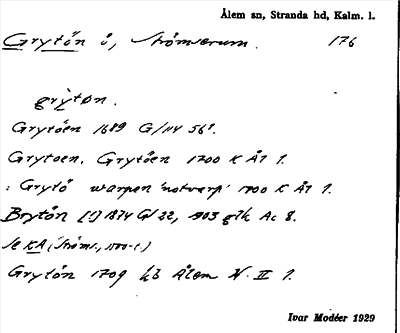 Ålem sn, Stranda hd, Kalm. l.
Grytön ö, Strömserum. 176
grỳtøn.
Grytöen 1689 G/114 56¹.
Grytoen, Grytöen 1700 K ÅT 1.
: Grytö warpen 'notvarp' 1700 K ÅT 1.
Brytön [!] 1874 G/22, 1903 glk Ac 8.
Se KA (Ströms., 1500-t.)
Grytön 1709 kb Ålem N. II 1.
Ivar Modéer 1929